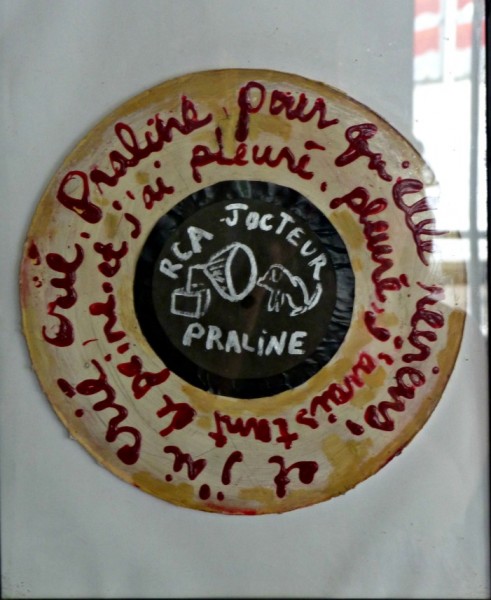 et j'ai crié, crié, Praline, pour qu'elle revienne,
et j'ai pleuré, pleuré, j'avais tant de peine.
RCA JOCTEUR
PRALINE